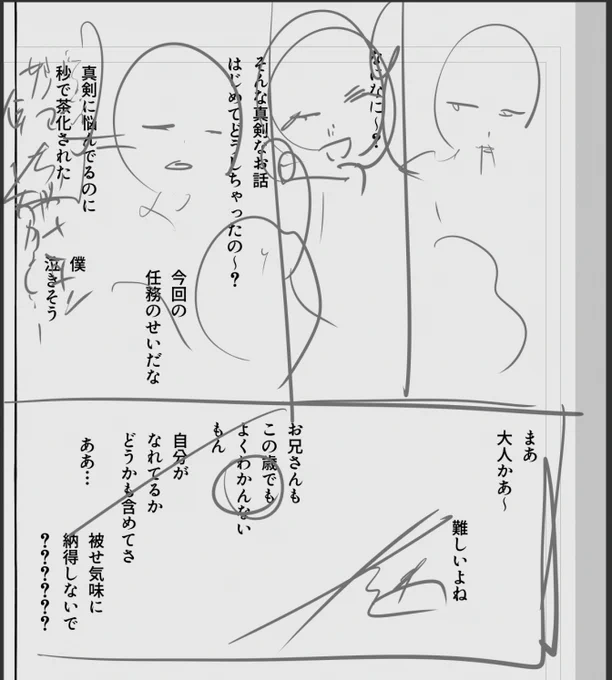 なになに～？
そんな真剣なお話
はじめてどうしちゃったの～？
今回の
任務のせいだな
真剣に悩んでるのに
秒で茶化された
僕
泣きそう
まあ
大人かあ～
難しいよね
お兄さんも
この歳でも
よくわかんない
もん
自分が
なれてるか
どうかも含めてさ
ああ…
被せ気味に
納得しないで
？？？？？？